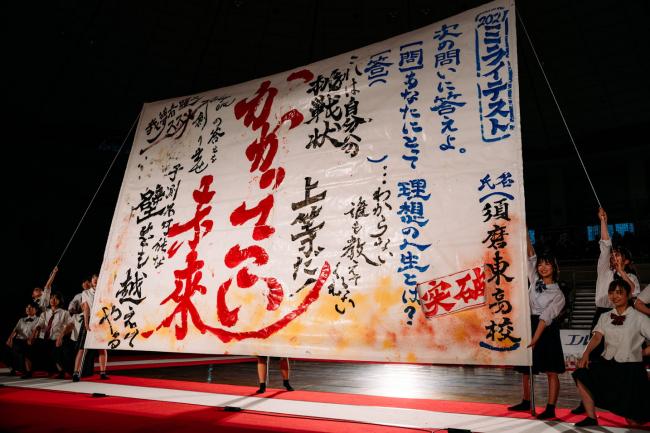 2021
ミライテスト
次の問いに答えよ。
【問】あなたにとって
理想の人生とは?
【答】(
)
氏名(須磨東高校)
突破
…わからない
誰も教えてくれない
これは自分の
挑戦状
上等だ!
かかってこい
未来
予測不可能な
壁をも越えてやる
エル